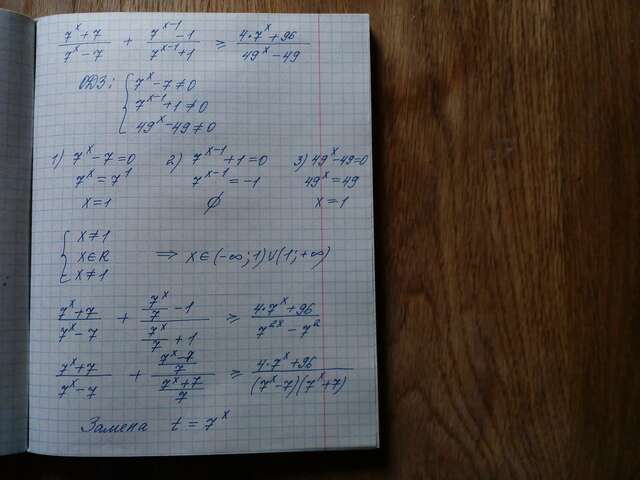 (7^x+7)/(7^x-7) + (7^(x-1)-1)/(7^(x-1)+1) ⩾ (4·7^x+96)/(49^x-49)
ОДЗ: { 7^x-7≠0
7^(x-1)+1≠0
49^x-49≠0
1) 7^x-7=0 2) 7^(x-1)+1=0 3) 49^x-49=0
7^x=7^1 7^(x-1)=-1 49^x=49
x=1 ∅ x=1
{ x≠1
x∈R ⇒ x∈(-∞;1)∪(1;+∞)
x≠1
(7^x+7)/(7^x-7) + (7^x/7-1)/(7^x/7+1) ⩾ (4·7^x+96)/(7^(2x)-7^2)
(7^x+7)/(7^x-7) + ((7^x-7)/7)/((7^x+7)/7) ⩾ (4·7^x+96)/((7^x-7)(7^x+7))
Замена t=7^x